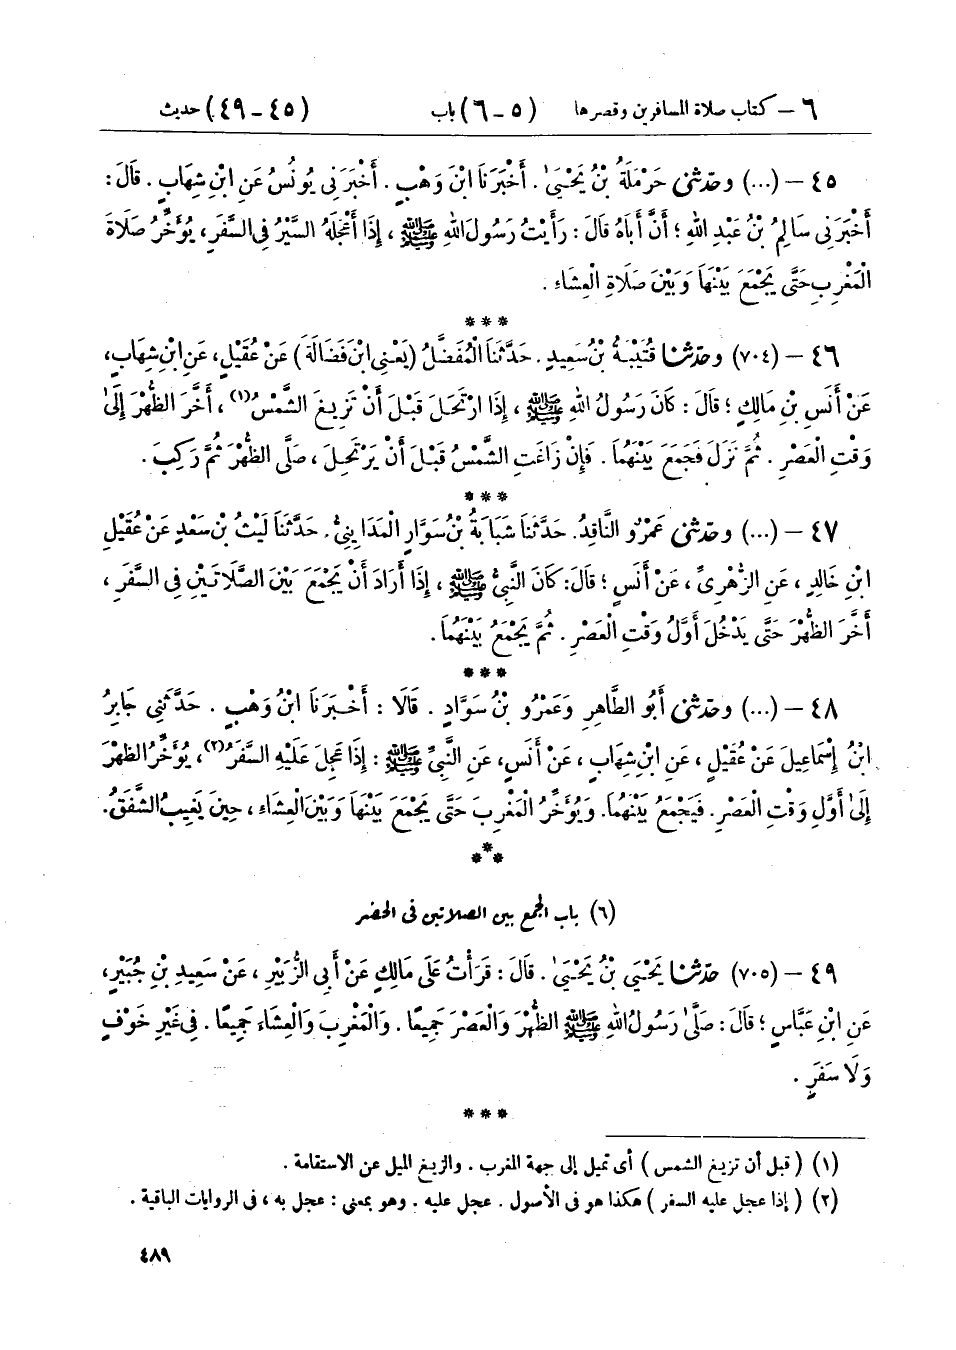 ٦ – كتاب صلاة المسافرين وقصرها (٥ – ٦) باب (٤٥ – ٤٩) حديث
٤٥ – (...) وحَدَّثَنِي حَرْمَلَةُ بْنُ يَحْيَىٰ. أَخْبَرَنَا ابْنُ وَهْبٍ. أَخْبَرَنِي يُونُسُ عَنِ ابْنِ شِهَابٍ. قَالَ:
أَخْبَرَنِي سَالِمُ بْنُ عَبْدِ اللهِ؛ أَنَّ أَبَاهُ قَالَ: رَأَيْتُ رَسُولَ اللهِ ﷺ، إِذَا أَعْجَلَهُ السَّيْرُ فِي السَّفَرِ، يُؤَخِّرُ صَلَاةَ
الْمَغْرِبِ حَتَّى يَجْمَعَ بَيْنَهَا وَبَيْنَ صَلَاةِ الْعِشَاءِ.
***
٤٦ – (٧٠٤) وحَدَّثَنَا قُتَيْبَةُ بْنُ سَعِيدٍ. حَدَّثَنَا الْمُفَضَّلُ (يَعْنِي ابْنَ فَضَالَةَ) عَنْ عُقَيْلٍ، عَنِ ابْنِ شِهَابٍ،
عَنْ أَنَسِ بْنِ مَالِكٍ؛ قَالَ: كَانَ رَسُولُ اللهِ ﷺ، إِذَا ارْتَحَلَ قَبْلَ أَنْ تَزِيغَ الشَّمْسُ(١)، أَخَّرَ الظُّهْرَ إِلَىٰ
وَقْتِ الْعَصْرِ. ثُمَّ نَزَلَ فَجَمَعَ بَيْنَهُمَا. فَإِنْ زَاغَتِ الشَّمْسُ قَبْلَ أَنْ يَرْتَحِلَ، صَلَّى الظُّهْرَ ثُمَّ رَكِبَ.
***
٤٧ – (...) وحَدَّثَنِي عَمْرٌو النَّاقِدُ. حَدَّثَنَا شَبَابَةُ بْنُ سَوَّارٍ الْمَدَايِنِيُّ. حَدَّثَنَا لَيْثُ بْنُ سَعْدٍ عَنْ عُقَيْلِ
ابْنِ خَالِدٍ، عَنِ الزُّهْرِيِّ، عَنْ أَنَسٍ؛ قَالَ: كَانَ النَّبِيُّ ﷺ، إِذَا أَرَادَ أَنْ يَجْمَعَ بَيْنَ الصَّلَاتَيْنِ فِي السَّفَرِ،
أَخَّرَ الظُّهْرَ حَتَّى يَدْخُلَ أَوَّلُ وَقْتِ الْعَصْرِ. ثُمَّ يَجْمَعُ بَيْنَهُمَا.
***
٤٨ – (...) وحَدَّثَنِي أَبُو الطَّاهِرِ وَعَمْرُو بْنُ سَوَّادٍ. قَالَا: أَخْبَرَنَا ابْنُ وَهْبٍ. حَدَّثَنِي جَابِرُ
ابْنُ إِسْمَاعِيلَ عَنْ عُقَيْلٍ، عَنِ ابْنِ شِهَابٍ، عَنْ أَنَسٍ، عَنِ النَّبِيِّ ﷺ: إِذَا عَجِلَ عَلَيْهِ السَّفَرُ(٢)، يُؤَخِّرُ الظُّهْرَ
إِلَىٰ أَوَّلِ وَقْتِ الْعَصْرِ. فَيَجْمَعُ بَيْنَهُمَا. وَيُؤَخِّرُ الْمَغْرِبَ حَتَّى يَجْمَعَ بَيْنَهَا وَبَيْنَ الْعِشَاءِ، حِينَ يَغِيبُ الشَّفَقُ.
***
(٦) باب الجمع بين الصلاتين في الحضر
٤٩ – (٧٠٥) حَدَّثَنَا يَحْيَىٰ بْنُ يَحْيَىٰ. قَالَ: قَرَأْتُ عَلَى مَالِكٍ عَنْ أَبِي الزُّبَيْرِ، عَنْ سَعِيدِ بْنِ جُبَيْرٍ،
عَنِ ابْنِ عَبَّاسٍ؛ قَالَ: صَلَّىٰ رَسُولُ اللهِ ﷺ الظُّهْرَ وَالْعَصْرَ جَمِيعًا. وَالْمَغْرِبَ وَالْعِشَاءَ جَمِيعًا. فِي غَيْرِ خَوْفٍ
وَلَا سَفَرٍ.
***
(١) (قبل أن تزيغ الشمس) أى تميل إلى جهة المغرب. والزيغ الميل عن الاستقامة.
(٢) (إذا عجل عليه السفر) هكذا هو فى الأصول. عجل عليه. وهو بمعنى: عجل به، فى الروايات الباقية.
٤٨٩